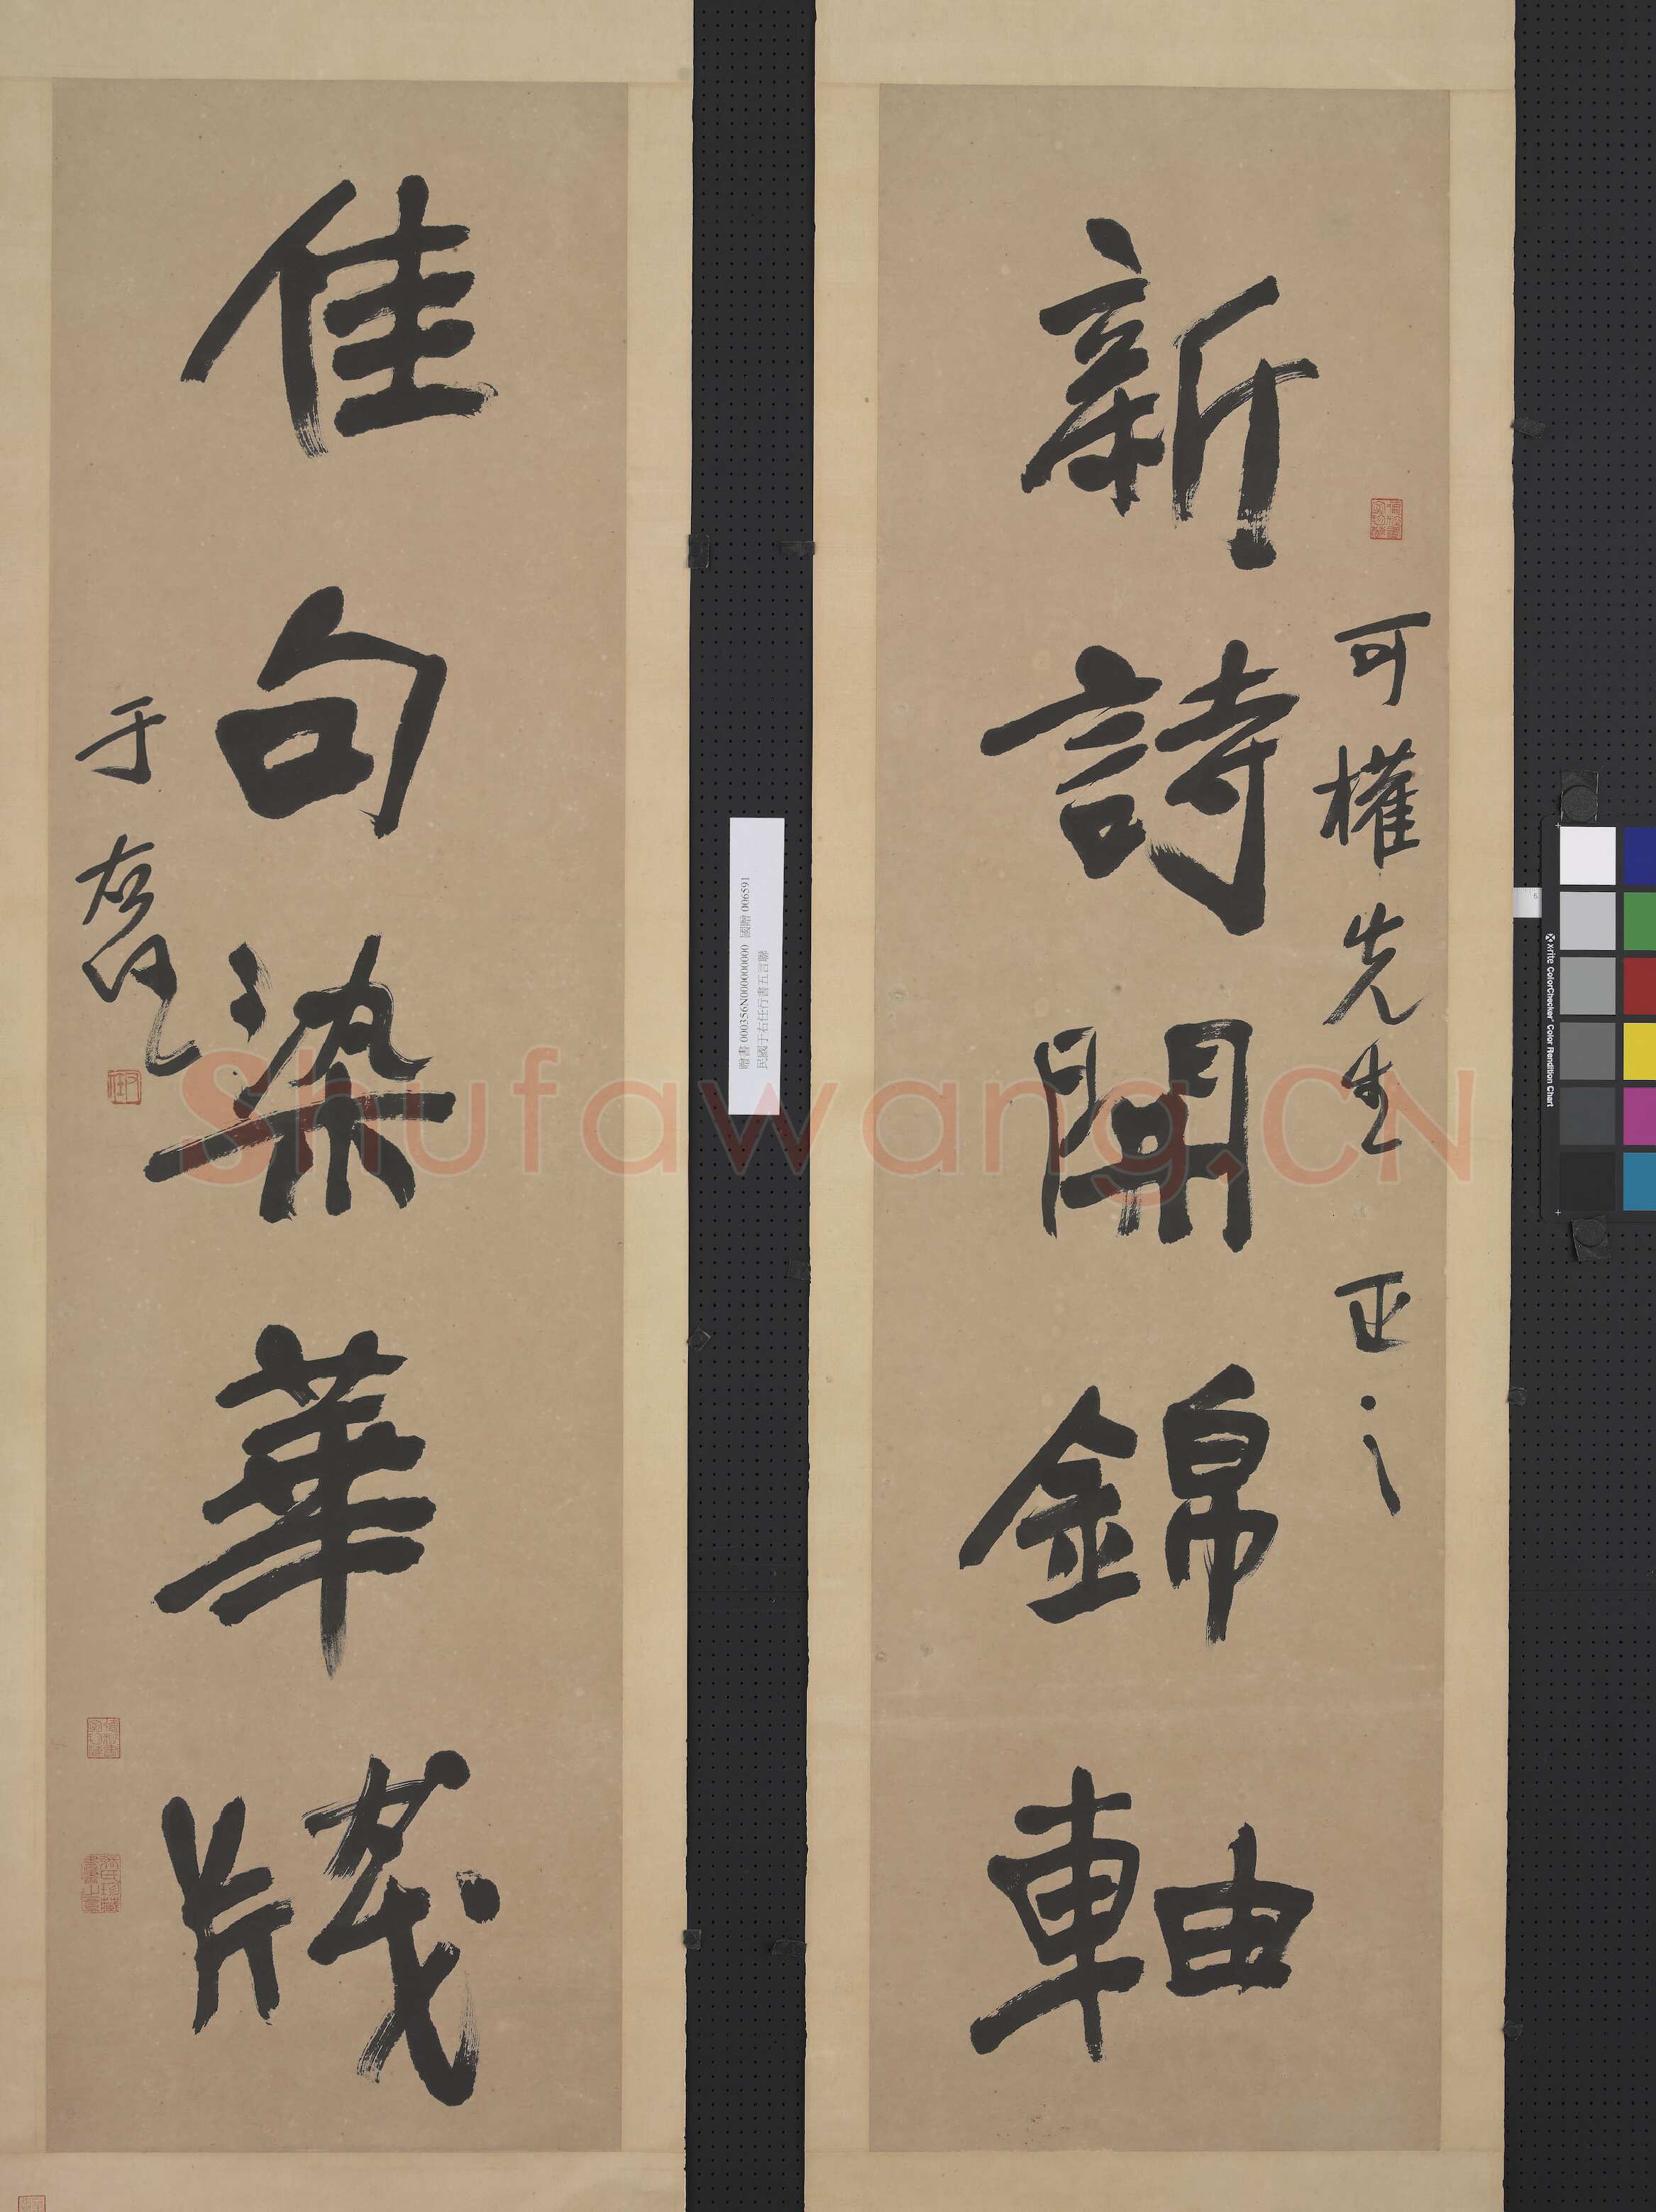 新詩開錦軸
可權先生 正之
佳句染華牋
于右任
贈書 000356N000000000 國贈 006591
民國于右任行書五言聯
Shufawang.CN
x-rite ColorChecker Color Rendition Chart